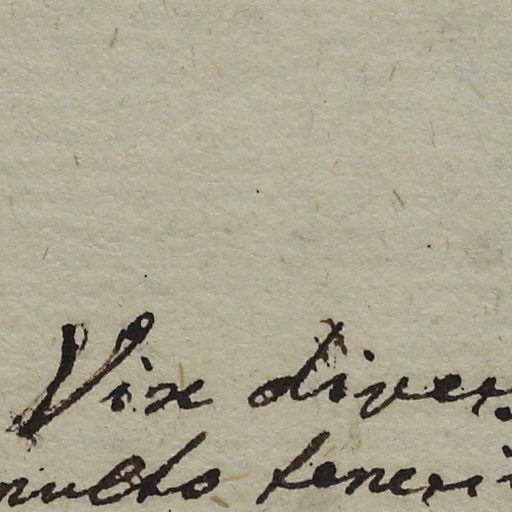 Vix diver
multo teneri